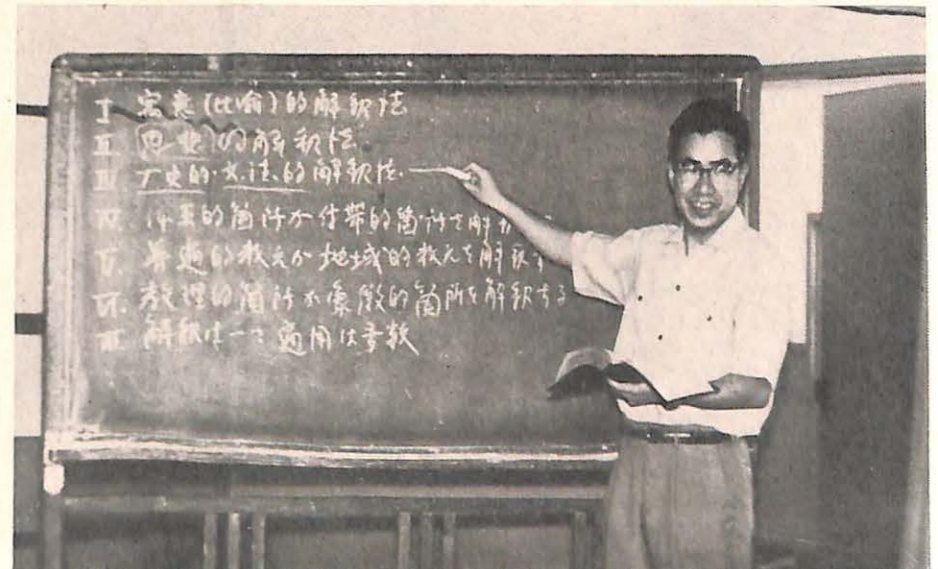 I 寓意(比喩)的解釈法
II 的解釈法
III 歴史的・文法的解釈法
IV. 的箇所が付帯的箇所を解
V. 普遍的教えが地域的教えを解釈す
VI. 教理的箇所が象徴的箇所を解釈する
VII 解釈は一つ適用は多数